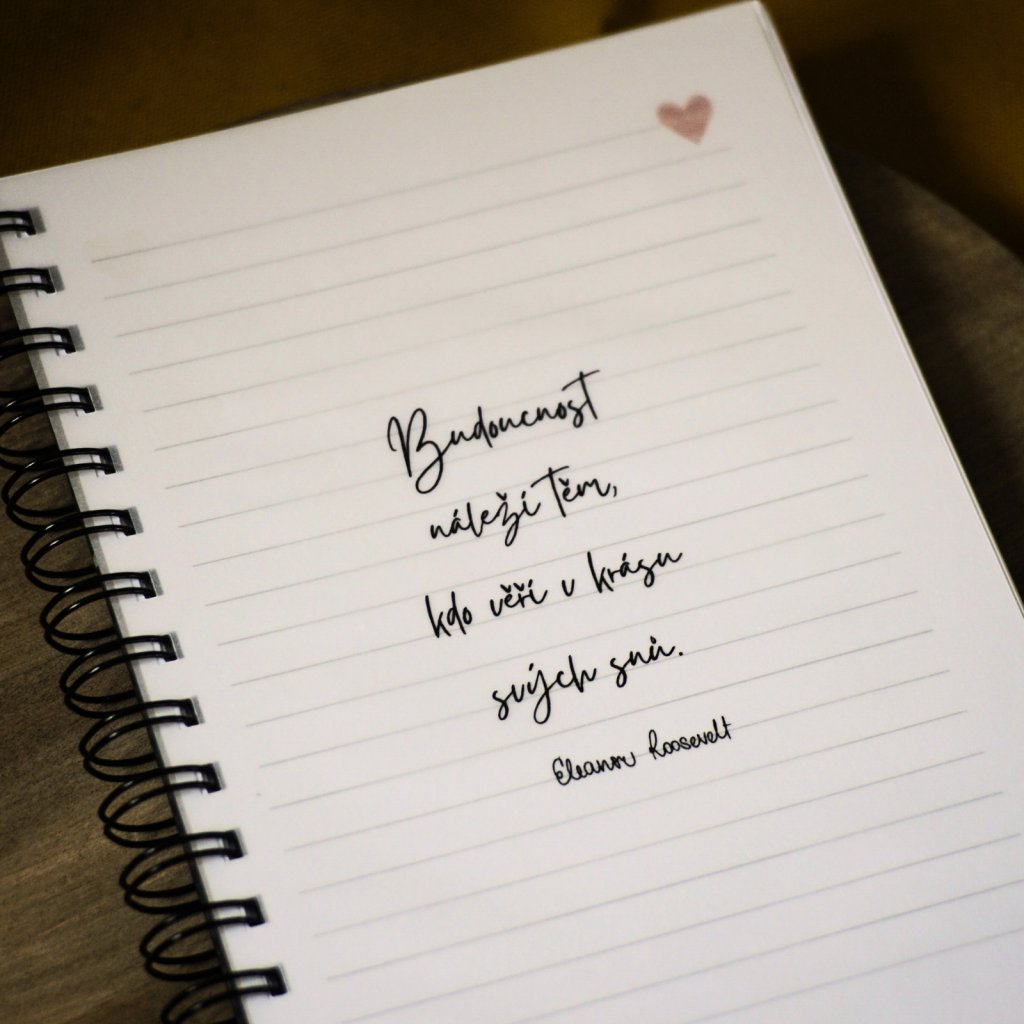 Budoucnost
náleží těm,
kdo věří v krásu
svých snů.
Eleanor Roosevelt